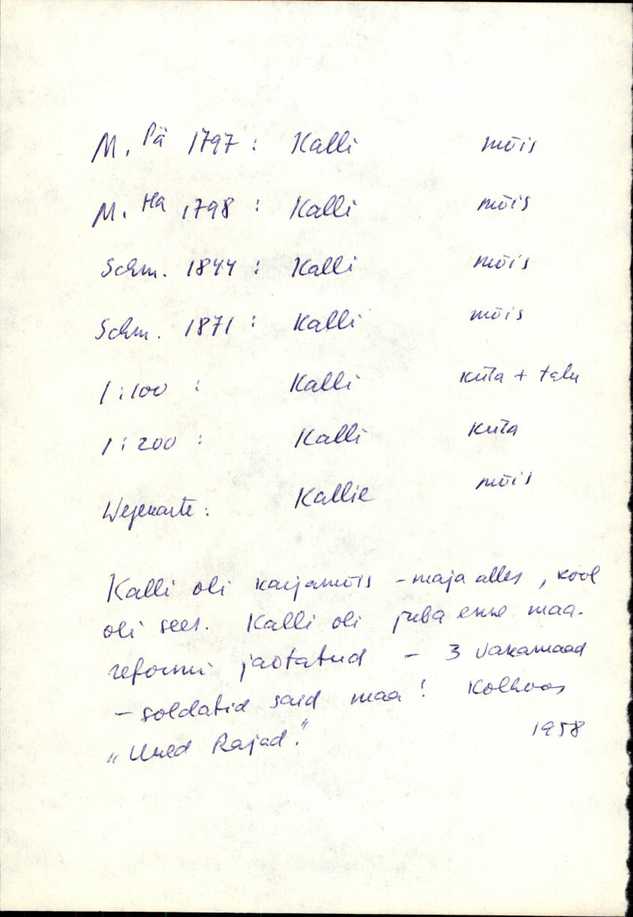 M. Pä 1797 : Kalli mõis
M. Ha 1798 : Kalli mõis
Schm. 1844 : Kalli mõis
Schm. 1871 : Kalli mõis
1:100 : Kalli küla + talu
1:200 : Kalli küla
Wegekarte : Kallie mõis
Kalli oli karjamõis – maja alles, kool
oli sees. Kalli oli juba enne maa-
reformi jaotatud – 3 vakamaad
– soldatid said maa! Kolhoos
„Uued Rajad." 1958